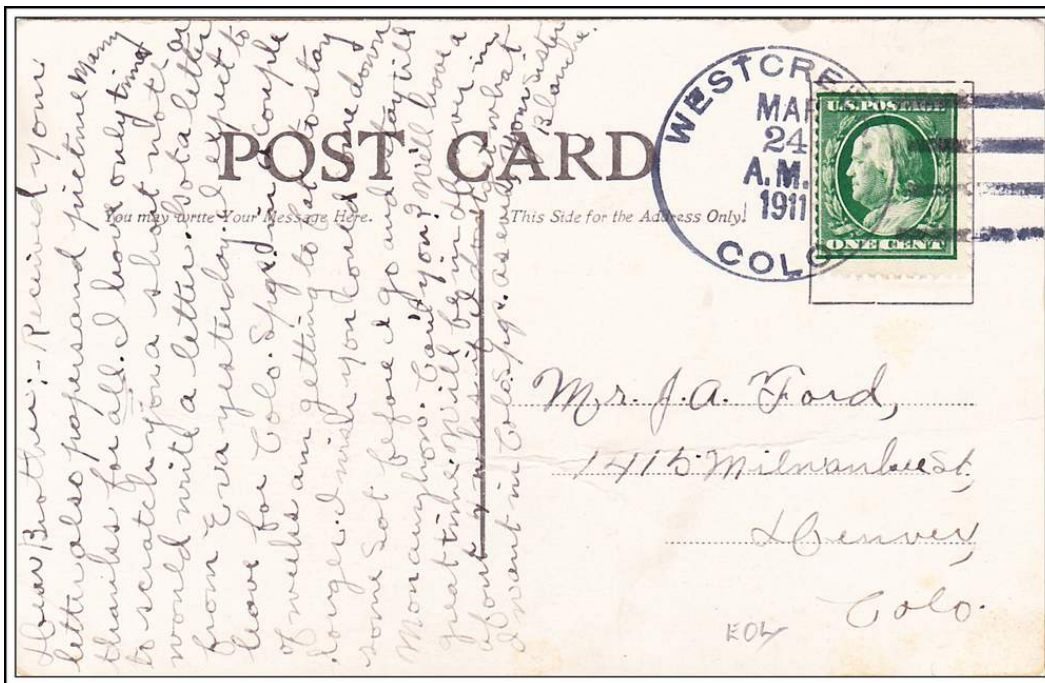 POST CARD
You may write Your Message Here.
This Side for the Address Only.
WESTCREE
MAR
24
A.M.
1911
COLO.
U.S. POSTAGE
ONE CENT
Dear Brother:- Received your
letter also papers and picture Many
thanks for all. I have only time
to scratch you a short note or
would write a letter. Got a letter
from Eva yesterday. I expect to
leave for Colo. Spgs. in a couple
of weeks am getting to
longer. I wish you could come down
some Sat before I go and stay till
Mon anyhow. Can't you? Will have a
great time. Will be in
about
I went in Colo. Spgs. as ever, Your Sister
Blanche.
Mr. J.A. Ford,
1415 Milwaukee St.
Denver,
Colo.